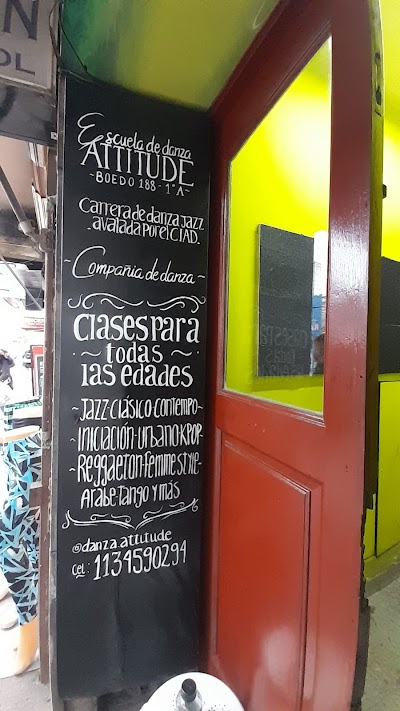 N
OL
Escuela de danza
ATTITUDE
~BOEDO 188-1°A~
Carrera de danza jazz
avalada por el CIAD.
~Compañía de danza~
Clases para
~ todas ~
las edades
~Jazz-Clásico-Contempo~
~Iniciación-Urbano-KPOP~
~Reggaeton-Femme style~
Arabe-Tango y más
@danza.attitude
cel: 1134590294